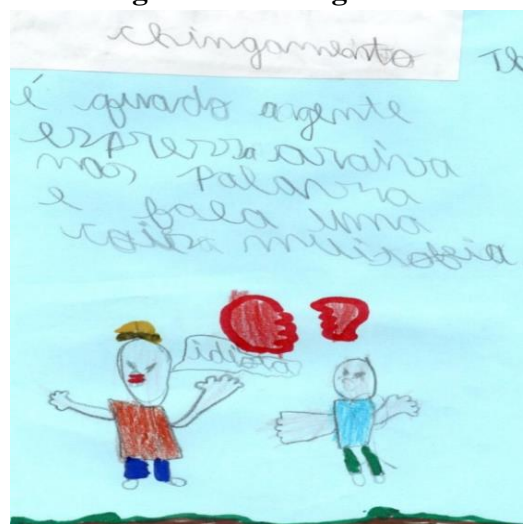 chingamento
é quado agente
espressa araiva
nas palavra
e fala uma
coisa muitofeia
idiota